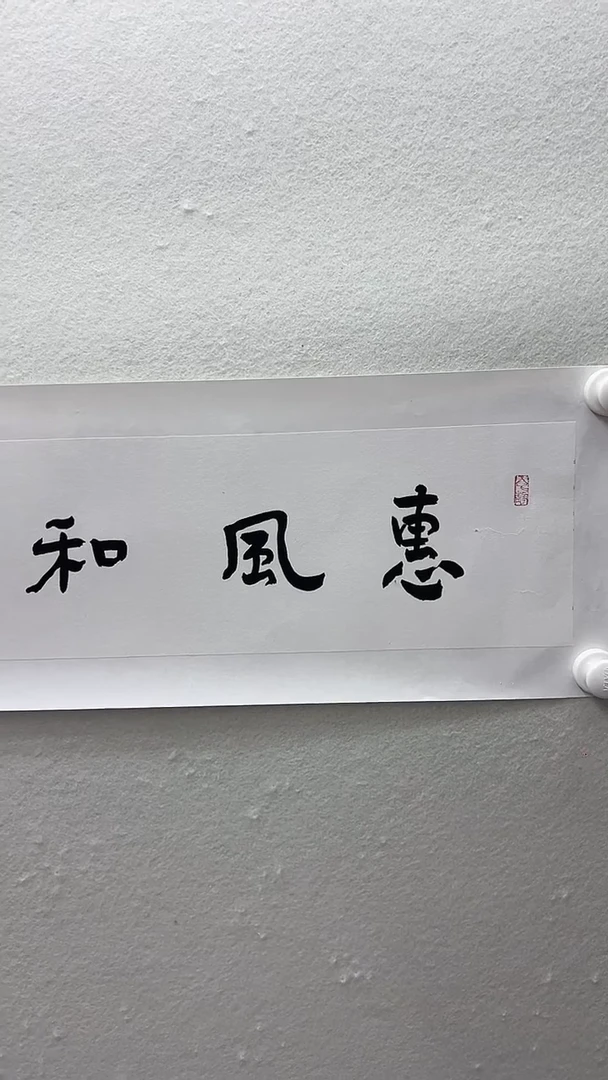 惠風和